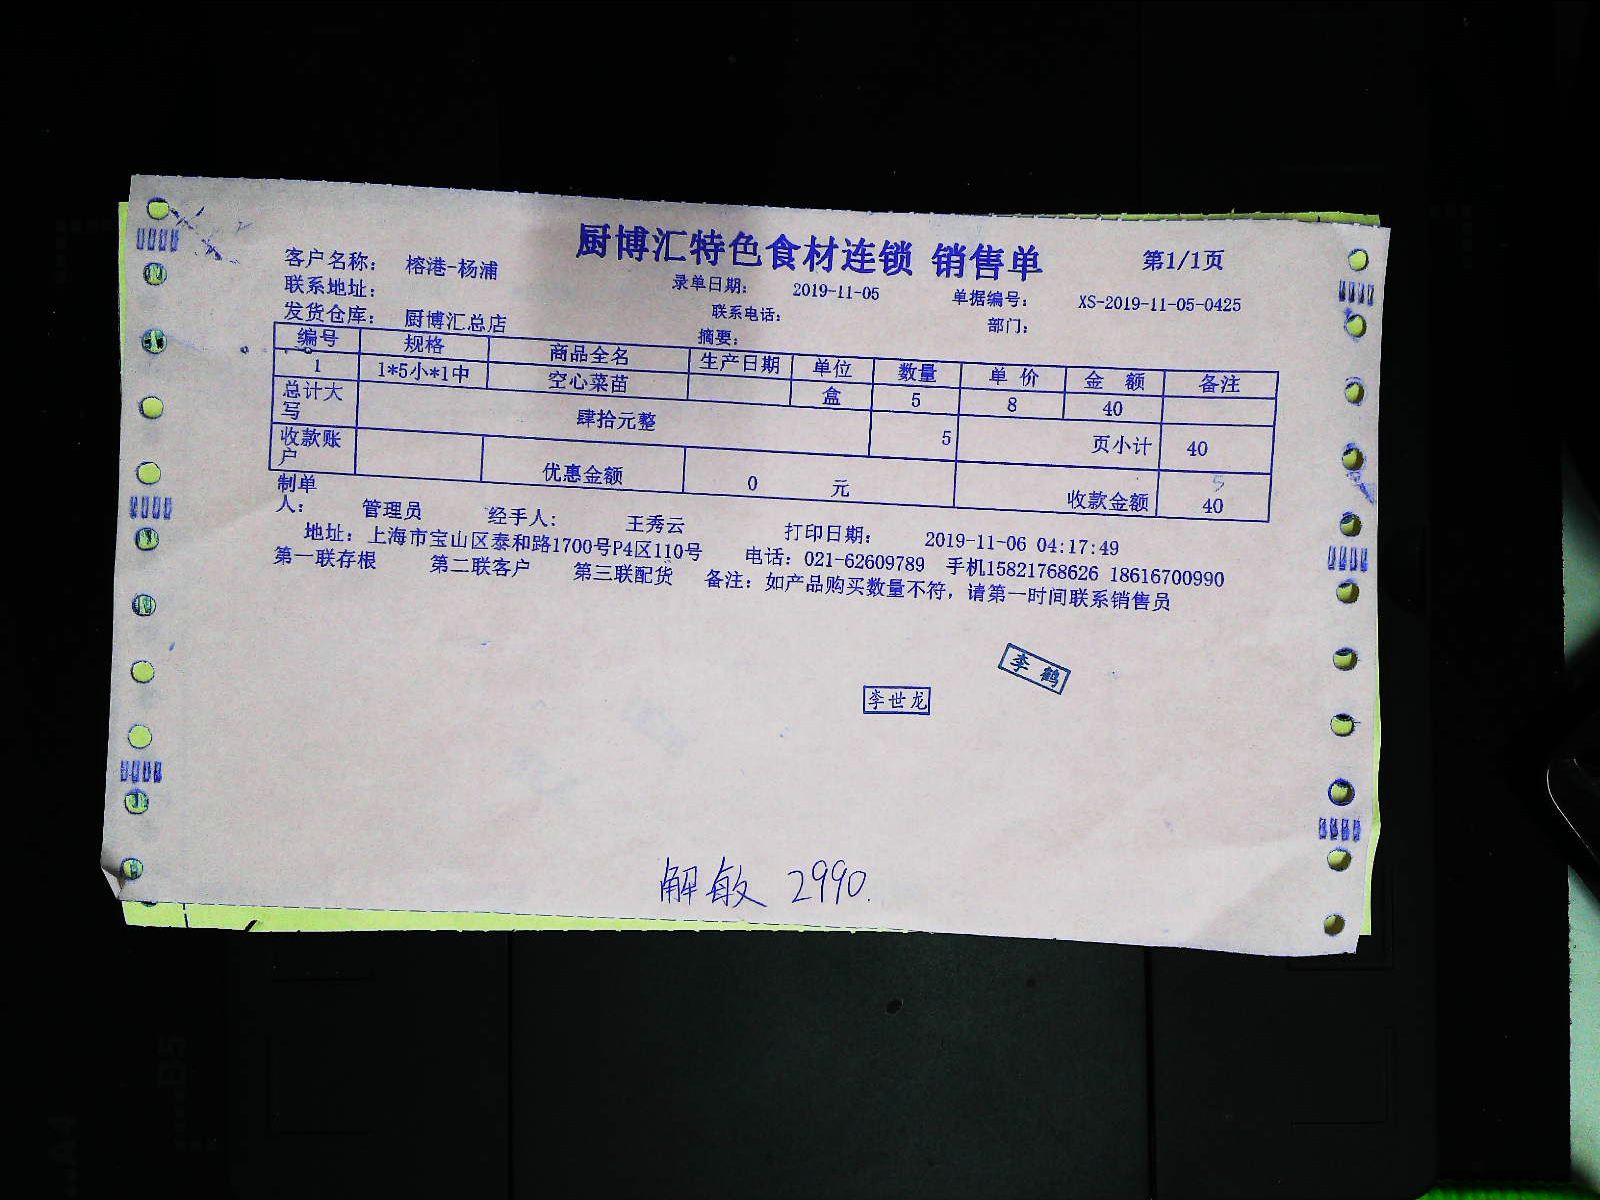 厨博汇特色食材连锁 销售单 第1/1页
客户名称： 榕港-杨浦
录单日期： 2019-11-05 单据编号： XS-2019-11-05-0425
联系地址： 联系电话： 部门：
发货仓库： 厨博汇总店 摘要：
编号 规格 商品全名 生产日期 单位 数量 单 价 金 额 备注
1 1*5小*1中 空心菜苗 盒 5 8 40
总计大写 肆拾元整 5 页小计 40
收款账户 优惠金额 0 元 收款金额 40
制单人： 管理员 经手人： 王秀云 打印日期： 2019-11-06 04:17:49
地址：上海市宝山区泰和路1700号P4区110号 电话：021-62609789 手机15821768626 18616700990
第一联存根 第二联客户 第三联配货 备注：如产品购买数量不符，请第一时间联系销售员
李鹤
李世龙
解敏 2990.